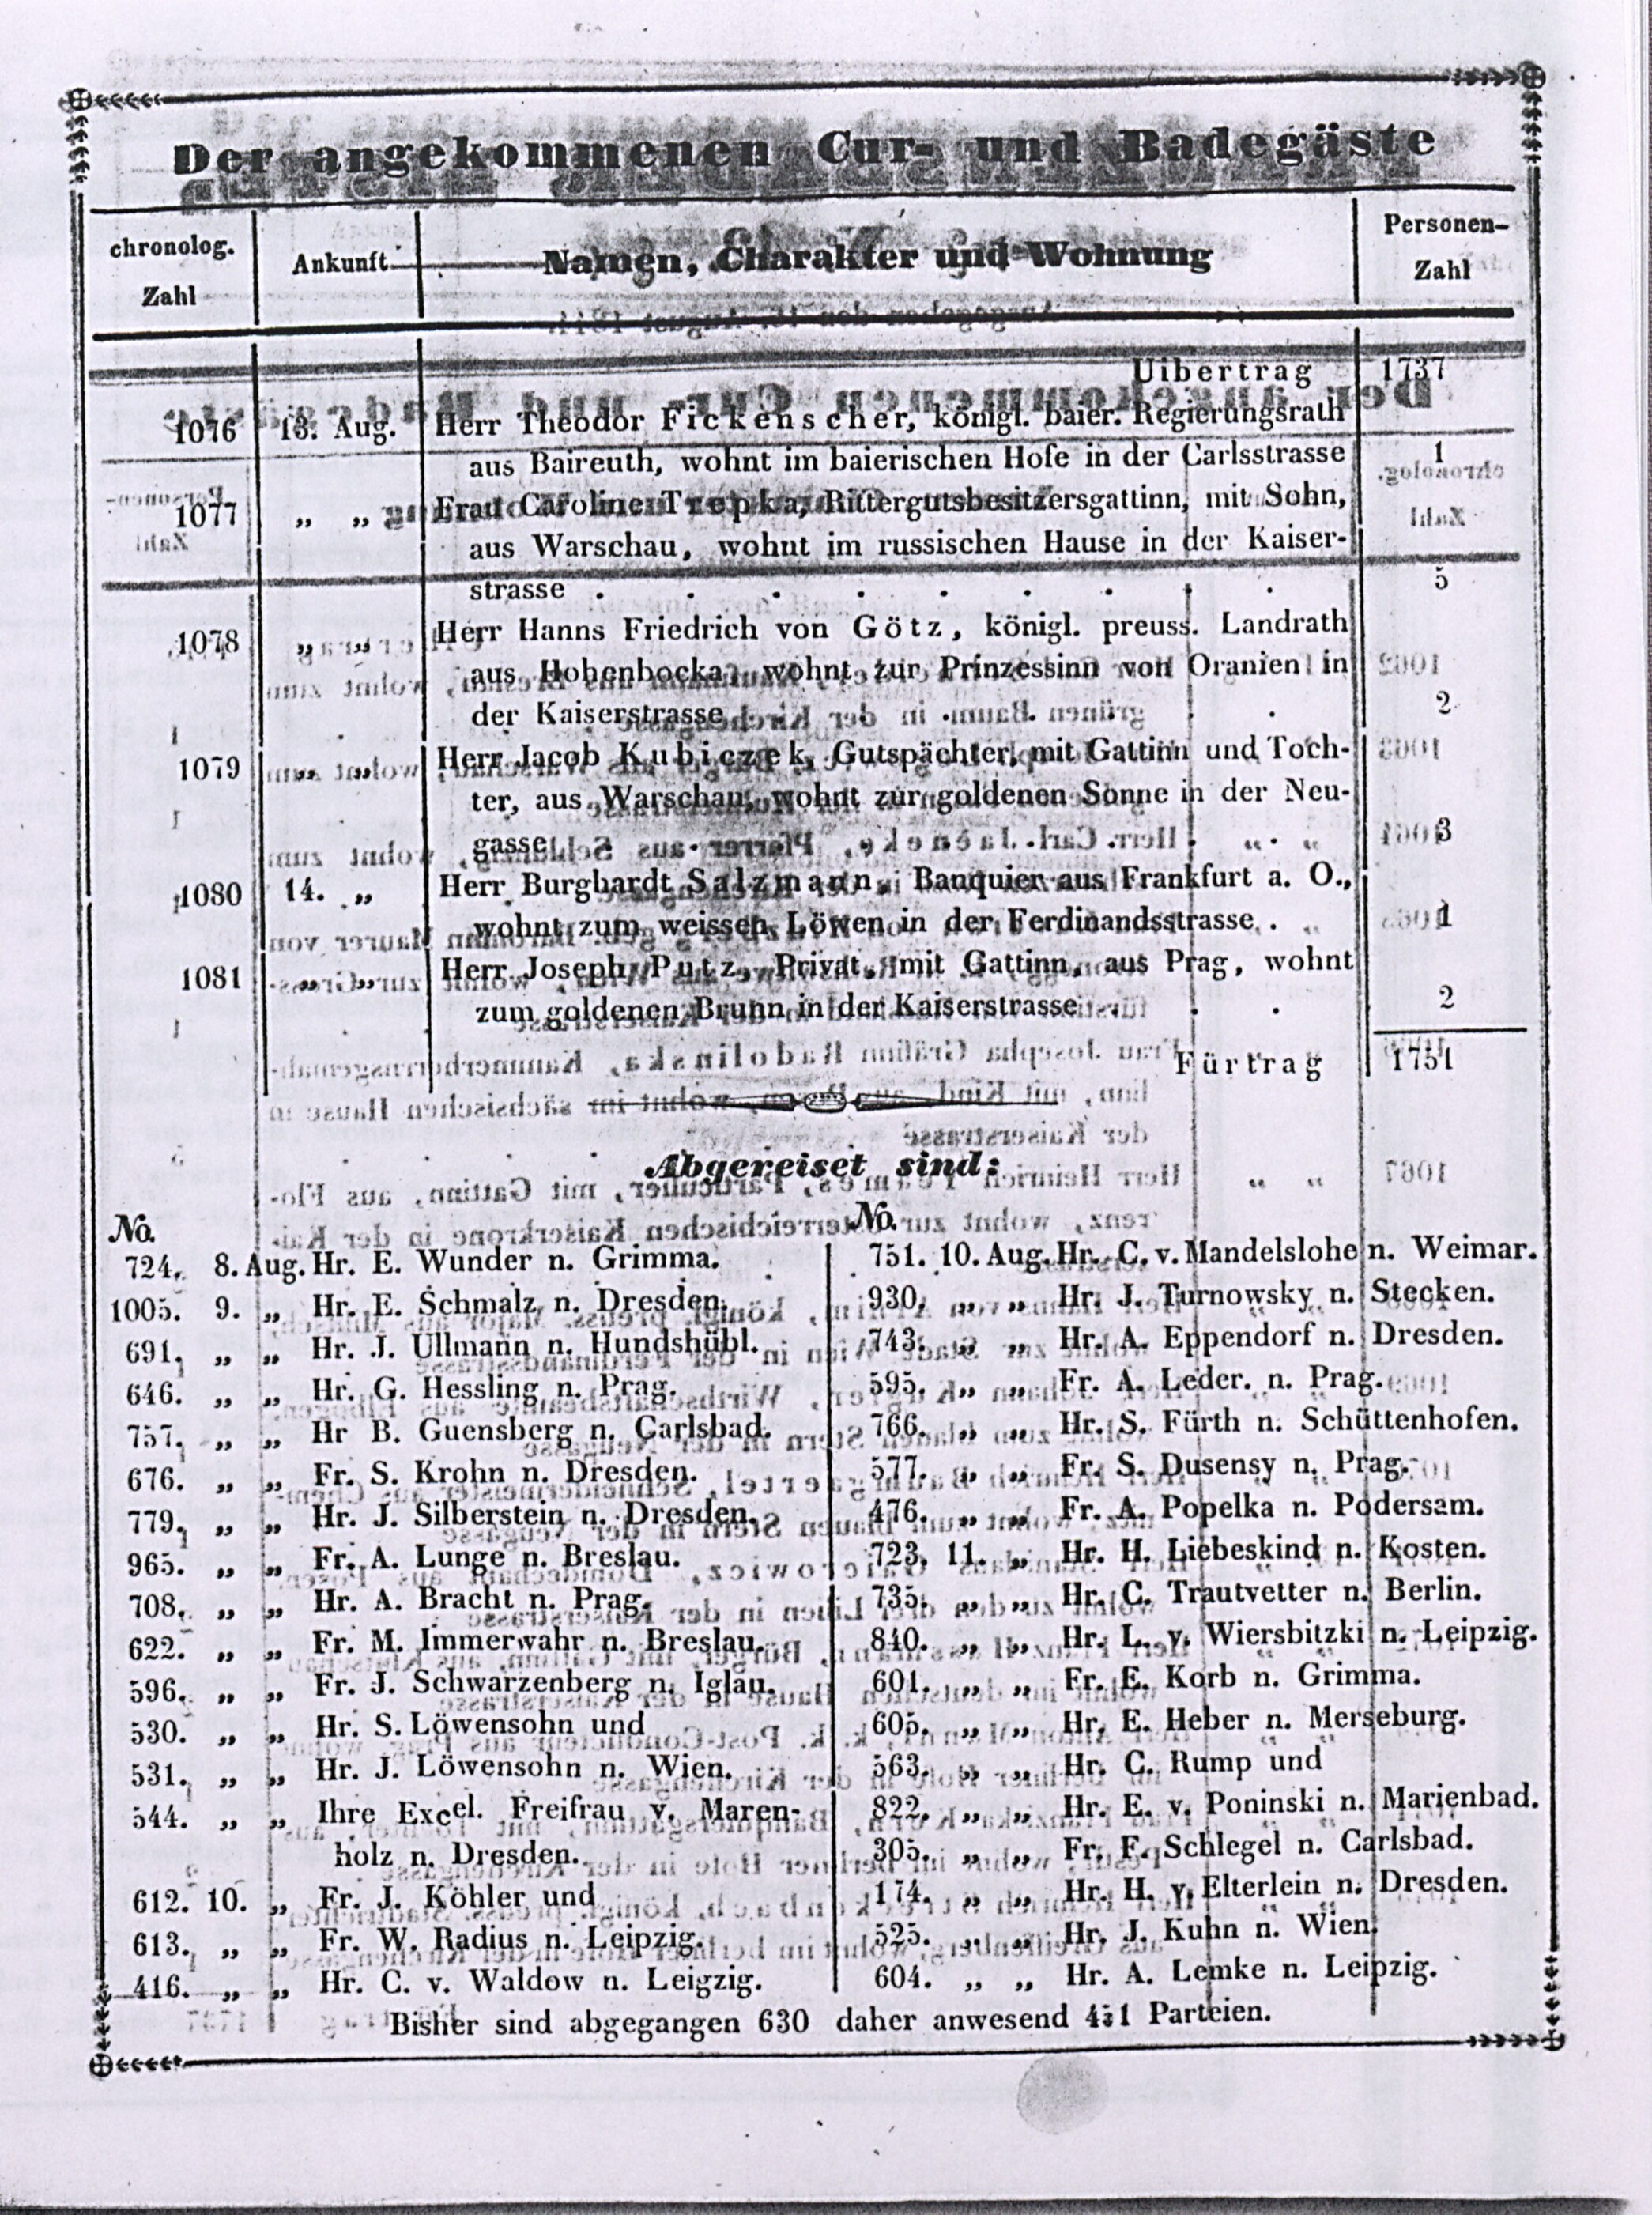 Der angekommenen Cur- und Badegäste
chronolog. Zahl
Ankunft
Namen, Charakter und Wohnung
Personen-Zahl
Uibertrag 1737
1076 13. Aug. Herr Theodor Fickenscher, königl. baier. Regierungsrath
aus Baireuth, wohnt im baierischen Hofe in der Carlsstrasse 1
1077 „ „ Frau Caroline Trepka, Rittergutsbesitzersgattinn, mit Sohn,
aus Warschau, wohnt im russischen Hause in der Kaiser-
strasse . . . . . . . . . 5
1078 „ „ Herr Hanns Friedrich von Götz, königl. preuss. Landrath
aus Hohenbocka, wohnt zur Prinzessinn von Oranien in
der Kaiserstrasse . . . 2
1079 „ „ Herr Jacob Kubiczek, Gutspächter, mit Gattinn und Toch-
ter, aus Warschau, wohnt zur goldenen Sonne in der Neu-
gasse . . . 3
1080 14. „ Herr Burghardt Salzmann, Banquier aus Frankfurt a. O.,
wohnt zum weissen Löwen in der Ferdinandsstrasse . . 1
1081 „ „ Herr Joseph Putz, Privat, mit Gattinn, aus Prag, wohnt
zum goldenen Brunn in der Kaiserstrasse . . . 2
Fürtrag 1751
Abgereiset sind:
No.
724. 8. Aug. Hr. E. Wunder n. Grimma.
1005. 9. „ Hr. E. Schmalz n. Dresden.
691. „ „ Hr. J. Ullmann n. Hundshübl.
646. „ „ Hr. G. Hessling n. Prag.
757. „ „ Hr B. Guensberg n. Carlsbad.
676. „ „ Fr. S. Krohn n. Dresden.
779. „ „ Hr. J. Silberstein n. Dresden.
965. „ „ Fr. A. Lunge n. Breslau.
708. „ „ Hr. A. Bracht n. Prag.
622. „ „ Fr. M. Immerwahr n. Breslau.
596. „ „ Fr. J. Schwarzenberg n. Iglau.
530. „ „ Hr. S. Löwensohn und
531. „ „ Hr. J. Löwensohn n. Wien.
544. „ „ Ihre Excel. Freifrau v. Maren-
holz n. Dresden.
612. 10. „ Fr. J. Köhler und
613. „ „ Fr. W. Radius n. Leipzig.
416. „ „ Hr. C. v. Waldow n. Leigzig.
No.
751. 10. Aug. Hr. C. v. Mandelslohe n. Weimar.
930. „ „ Hr. J. Turnowsky n. Stecken.
743. „ „ Hr. A. Eppendorf n. Dresden.
595. „ „ Fr. A. Leder. n. Prag.
766. „ „ Hr. S. Fürth n. Schüttenhofen.
577. „ „ Fr. S. Dusensy n. Prag.
476. „ „ Fr. A. Popelka n. Podersam.
723. 11. „ Hr. H. Liebeskind n. Kosten.
735. „ „ Hr. C. Trautvetter n. Berlin.
840. „ „ Hr. L. v. Wiersbitzki n. Leipzig.
601. „ „ Fr. E. Korb n. Grimma.
605. „ „ Hr. E. Heber n. Merseburg.
563. „ „ Hr. C. Rump und
822. „ „ Hr. E. v. Poninski n. Marienbad.
305. „ „ Fr. F. Schlegel n. Carlsbad.
174. „ „ Hr. H. v. Elterlein n. Dresden.
525. „ „ Hr. J. Kuhn n. Wien.
604. „ „ Hr. A. Lemke n. Leipzig.
Bisher sind abgegangen 630 daher anwesend 451 Parteien.